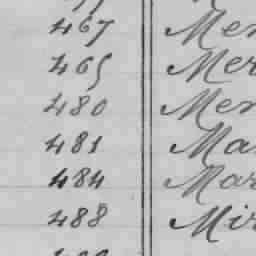 467 Mer
465 Mer
480 Mer
481 Ma
484 Mar
488 Mir